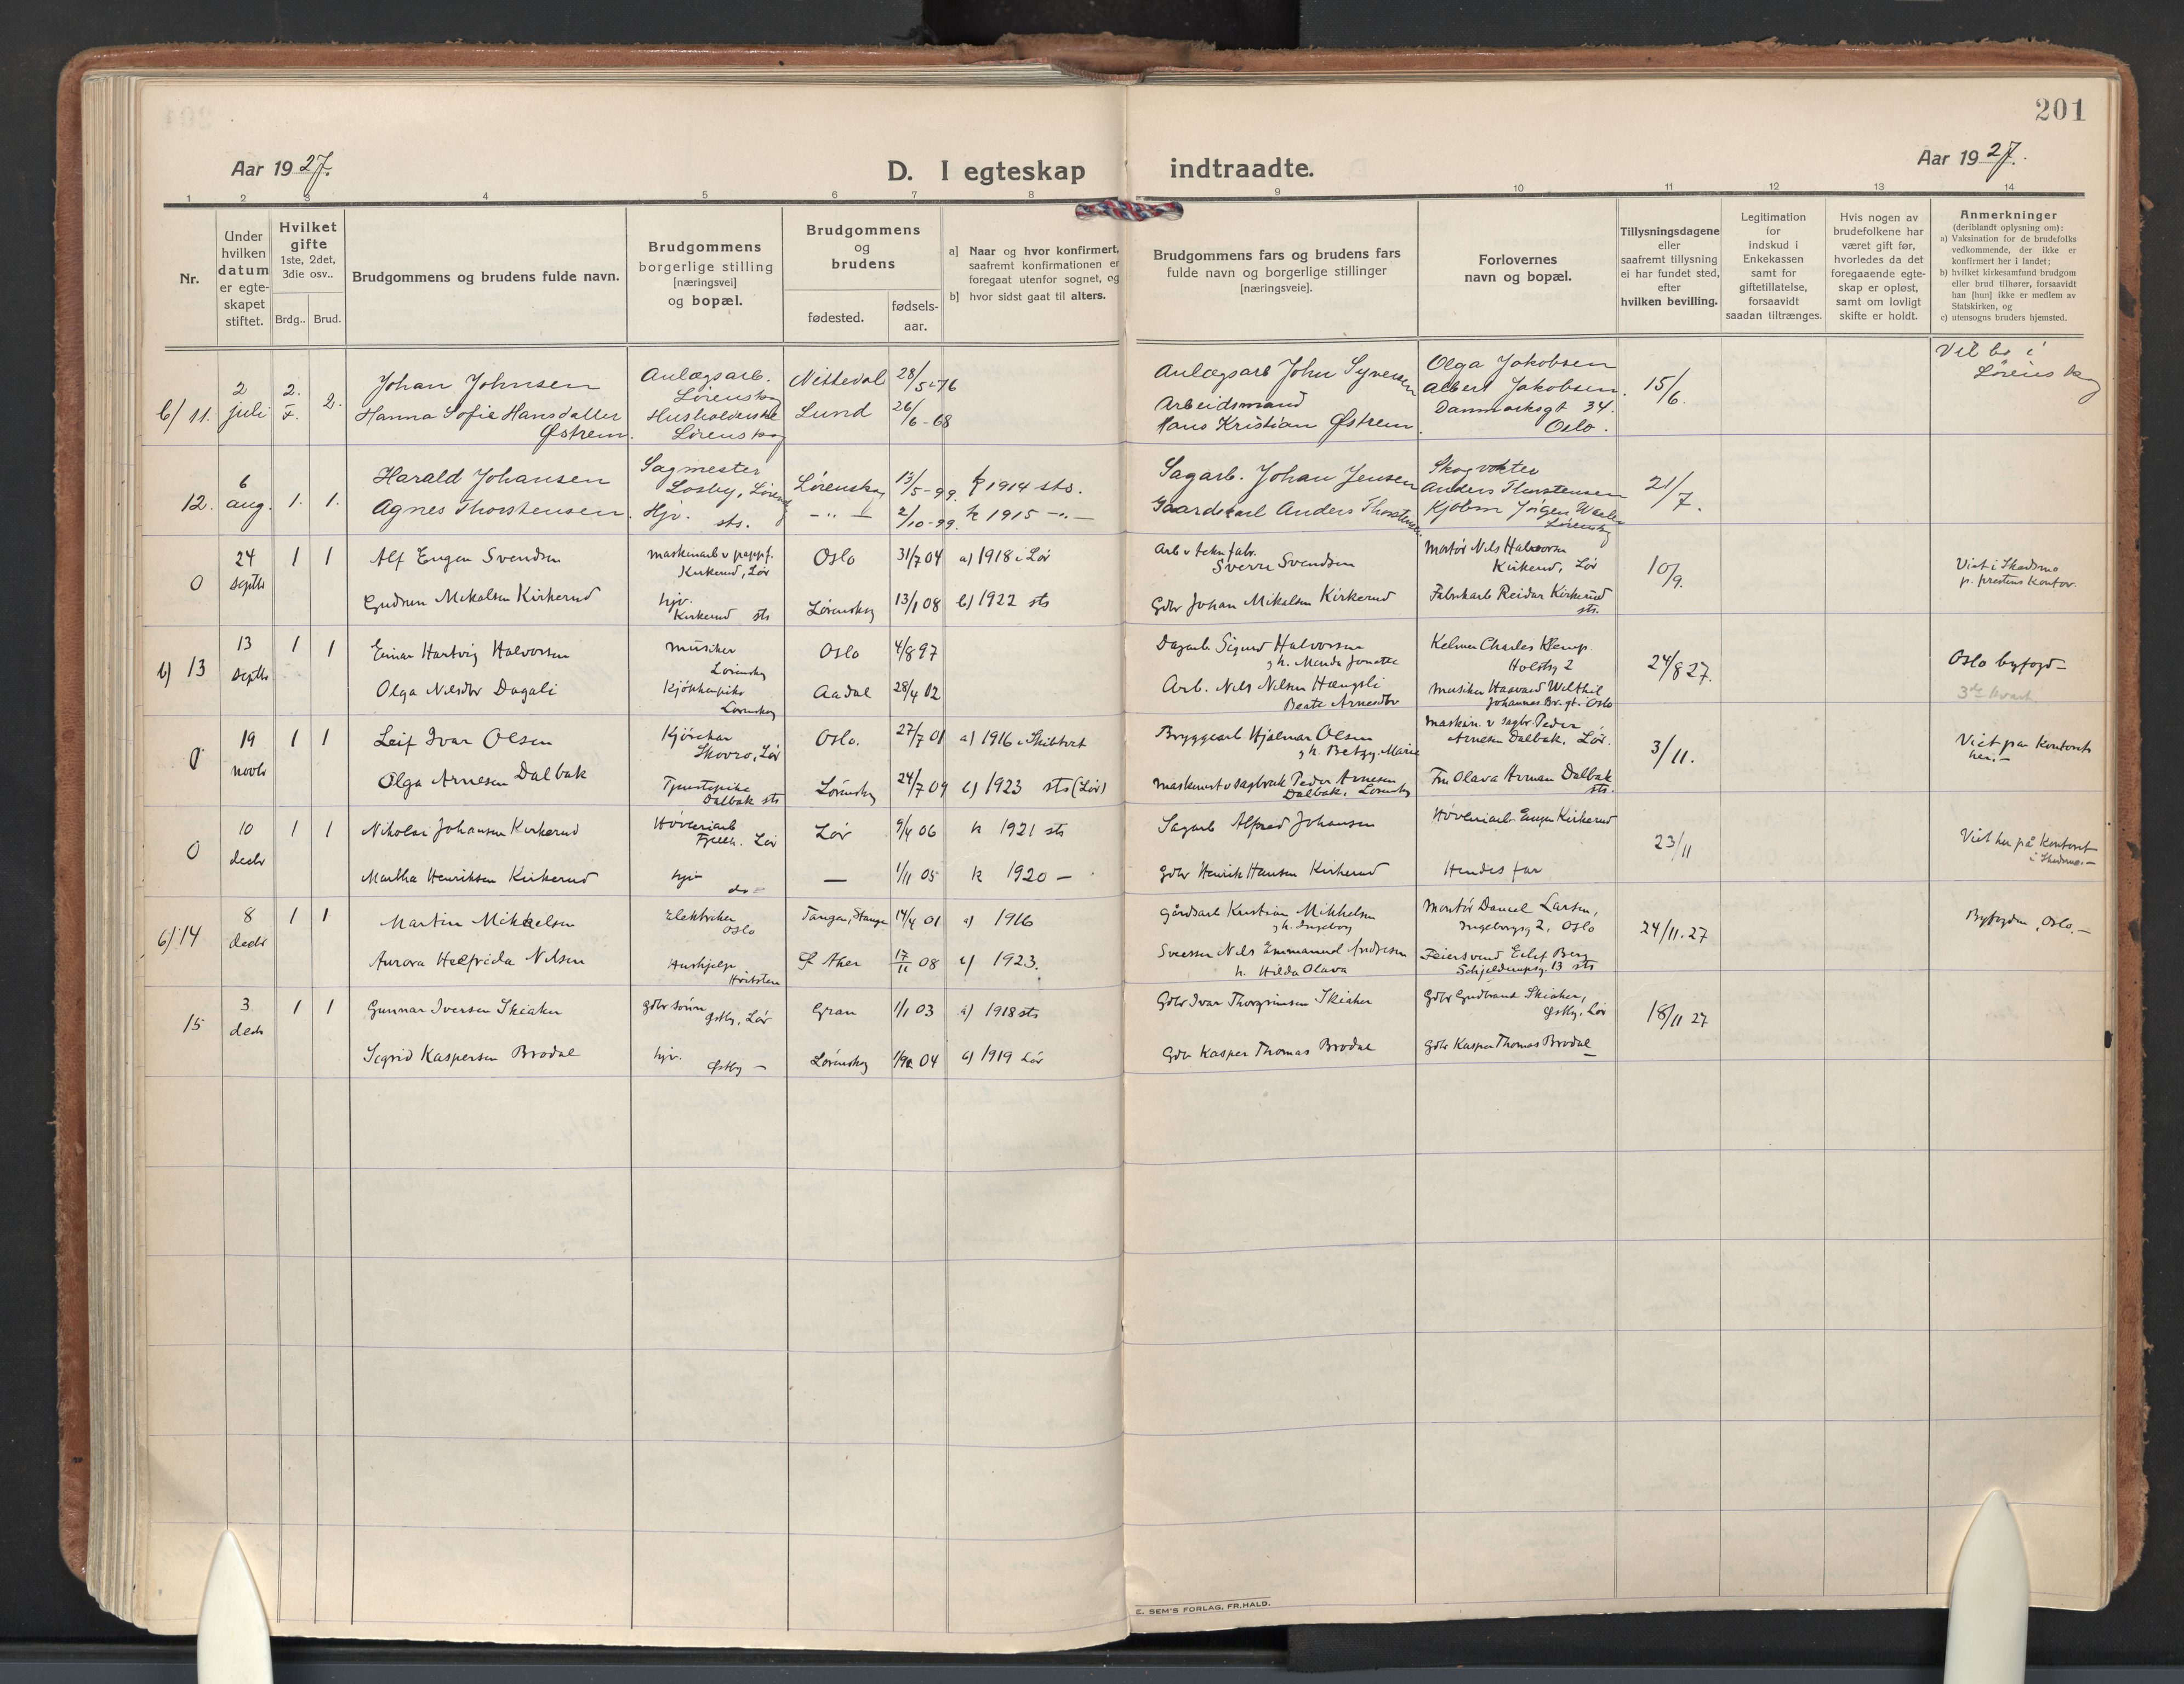 201
Aar 1927.
D. I egteskap indtraadte.
Aar 1927.
1 2 3 4 5 6 7 8 9 10 11 12 13 14
Nr.
Under
hvilken
datum
er egte-
skapet
stiftet.
Hvilket
gifte
1ste, 2det,
3die osv..
Brdg.. Brud.
Brudgommens og brudens fulde navn.
Brudgommens
borgerlige stilling
[næringsvei]
og bopæl.
Brudgommens
og
brudens
fødested.
fødsels-
aar.
a] Naar og hvor konfirmert,
saafremt konfirmationen er
foregaat utenfor sognet, og
b] hvor sidst gaat til alters.
Brudgommens fars og brudens fars
fulde navn og borgerlige stillinger
[næringsveie].
Forlovernes
navn og bopæl.
Tillysningsdagene
eller
saafremt tillysning
ei har fundet sted,
efter
hvilken bevilling.
Legitimation
for
indskud i
Enkekassen
samt for
giftetillatelse,
forsaavidt
saadan tiltrænges.
Hvis nogen av
brudefolkene har
været gift før,
hvorledes da det
foregaaende egte-
skap er opløst,
samt om lovligt
skifte er holdt.
Anmerkninger
(deriblandt oplysning om):
a) Vaksination for de brudefolks
vedkommende, der ikke er
konfirmert her i landet;
b) hvilket kirkesamfund brudgom
eller brud tilhører, forsaavidt
han [hun] ikke er medlem av
Statskirken, og
c) utensogns bruders hjemsted.
b/ 11. 2 juli 2. F. 2.
Johan Johnsen
Hanna Sofie Hansdatter
Østrem.
Anlægsarb.
Lørenskog
Husholderske
Lørenskog
Nittedal 28/5-76
Lund 26/6-68
Anlægsarb John Syversen
Arbeidsmand
Hans Kristian Østrem.
Olga Jakobsen
Albert Jakobsen.
Danmarksgt 34.
Oslo.
15/6.
Vil bo i
Lørenskog
12. 6 aug. 1. 1.
Harald Johansen
Agnes Thorstensen.
Sagmester
Losby, Lørensk
Hjv. sts.
Lørenskog 13/5-99. k 1914 sts.
-"- 2/10-99. k 1915 -"-
Sagarb. Johan Jensen
Gaardskarl Anders Thorstensen.
Skogvokter
Anders Thorstensen
Kjøbm Jørgen Waaler
Lørenskog
21/7.
0 24 septbr 1 1
Alf Eugen Svendsen
Gudrun Mikalsen Kirkerud
Maskinarb v pappf.
Kirkerud, Lør
hjv.
Kirkerud sts
Oslo 31/7 04 a) 1918 i Lør
Lørenskog 13/1 08 b) 1922 sts
Arb v tekn fabr.
Sverre Svendsen
Gdbr Johan Mikalsen Kirkerud
Montør Nils Halvorsen
Kirkerud, Lør
Fabrikarb Reidar Kirkerud
sts.
10/9.
Viet i Skedsmo
p. prestens kontor.
b) 13 13 septbr 1 1
Einar Hartvig Halvorsen
Olga Nilsdtr Dagali
Musiker
Lørenskog
Kjøkkenpike
Lørenskog
Oslo 4/8 97
Aadal 28/4 02
Dagarb. Sigurd Halvorsen
Arb. Nils Nilsen Hængsli
Beate Arnesdtr
Kelner Charles Klemp.
Holsbg 2
24/8 27.
Oslo byfogd -
0 19 novbr 1 1
Leif Ivar Olsen
Olga Arnesen Dalbak
Skovro, Lør
Tjenestepike
Dalbak sts
Oslo. 27/7 01 a) 1916 i Skibtvet
Lørenskog 24/7 09 b) 1923 sts (Lør)
Bryggearb Hjalmar Olsen
og h. Betzy Marie
Maskinist v sagbruk Peder Arnesen
Dalbak, Lørenskog
Maskin. v sagbr. Peder
Arnesen Dalbak, Lør.
Fru Olava Arnesen Dalbak
sts.
3/11.
Viet paa Kontoret
her. -
0 10 decbr 1 1
Nikolai Johansen Kirkerud
Martha Henriksen Kirkerud
Høvleriarb
Fjellh. Lør
hjv do
Lør 9/4 06 k 1921 sts
— 1/11 05 k 1920 —
Sagarb Alfred Johansen
Gdbr Henrik Hansen Kirkerud
Høvleriarb Eugen Kirkerud
Hendes far
23/11
Viet her på Kontoret
i Skedsmo. -
b) 14 8 decbr 1 1
Martin Mikkelsen
Aurora Helfrida Nilsen
Elektriker
Oslo
Hushjelp
Tangen, Stange 14/4 01 a) 1916
Ø Aker 17/11 08 b) 1923.
Gårdsarb Kristian Mikkelsen
og h. Ingeborg
Sveiser Nils Emmanuel Andresen
h. Hilda Olava
Montør Daniel Larsen,
Ingeborgsg 2, Oslo
Feiersvend Eilif Berg
Schjelderupsg. 13 sts
24/11. 27
Byfogden, Oslo. -
15 3 decbr 1 1
Gunnar Iversen Skiaker
Sigrid Kaspersen Brodal
gdbr sønn
Østby, Lør
hjv.
Østby —
Gran 1/1 03 a) 1918 sts
Lørenskog 04 b) 1919 Lør
Gdbr Ivar Thorgrimsen Skiaker
Gdbr Kasper Thomas Brodal
Gdbr Gudbrand Skiaker,
Østby, Lør
Gdbr Kasper Thomas Brodal
18/11 27
E. SEM'S FORLAG, FR.HALD.